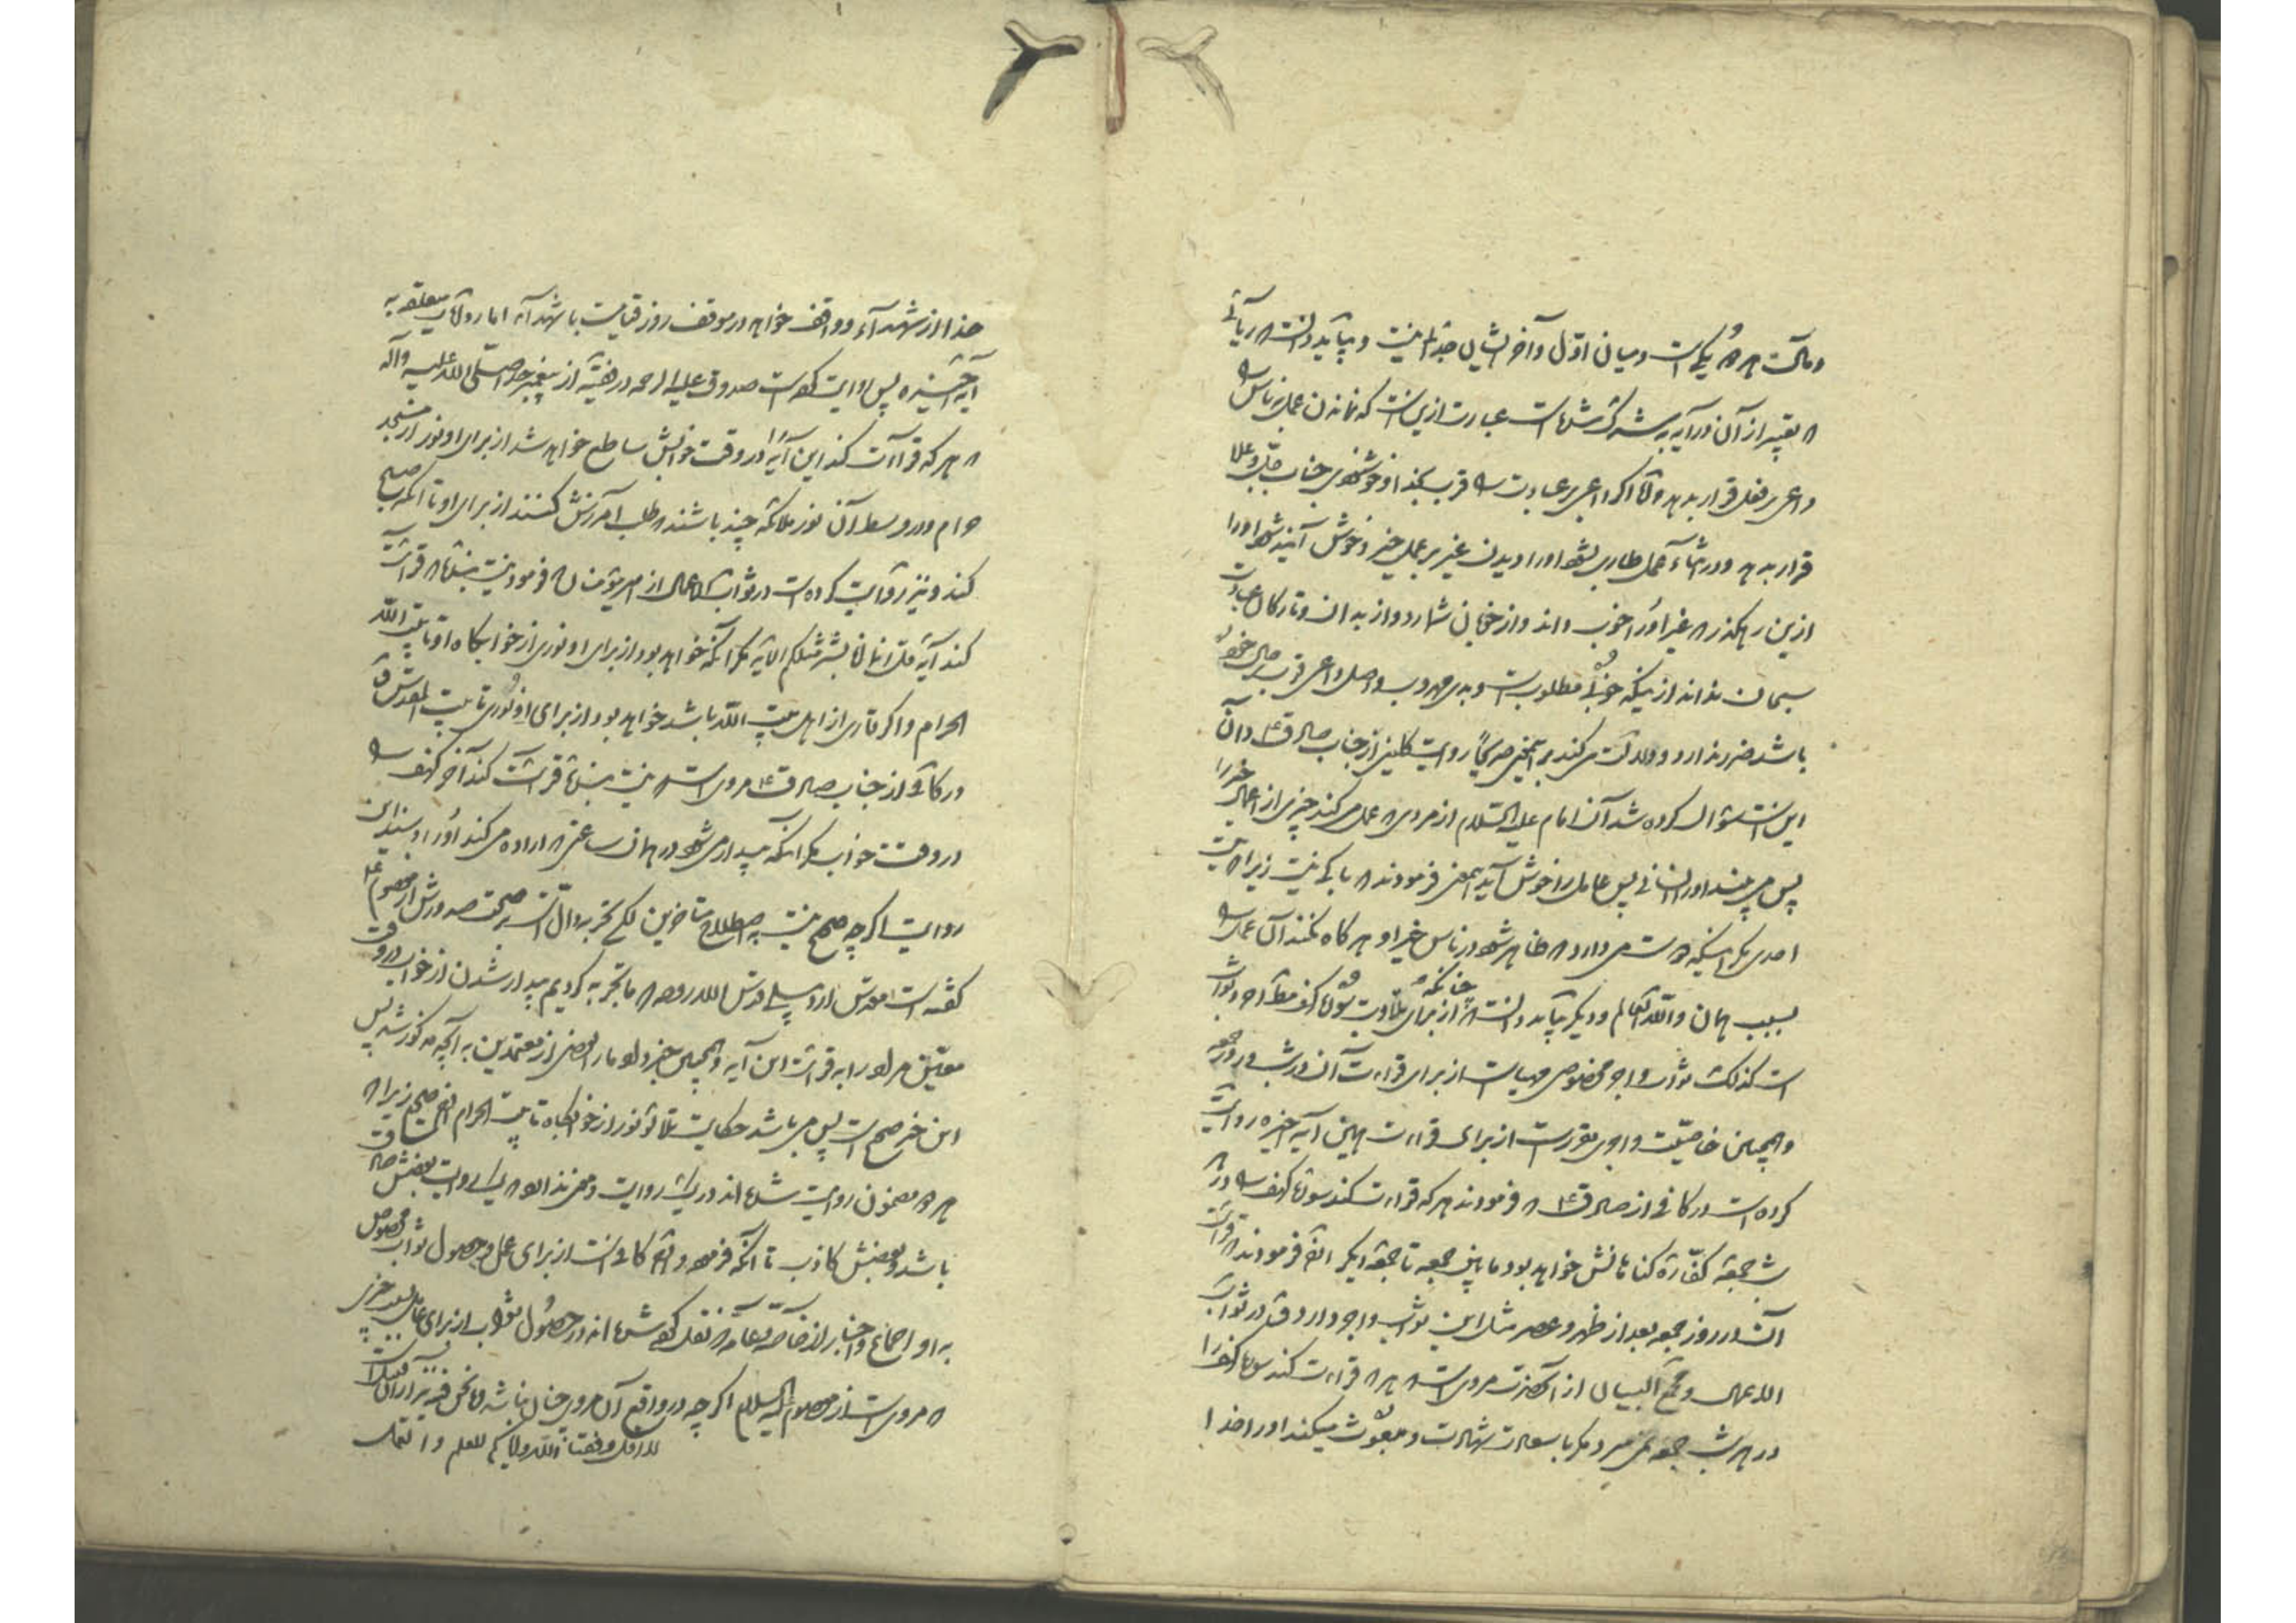 ومآلت هر دو یکی است و میان اول و آخر ایشان جدائی نیست و بباید دانست که ریائی
که تعبیر از آن در آیه به شرک شده است عبارت از این است که نماندن عمل بر ناس
داعی بر فعل قرار بدهد و الا اگر داعی بر عبادت قرب بخدا و خوشنودی جناب جل و علا
قرار بدهد و در اثناء عمل طاری بشود او را دیدن غیر بر عمل خیر و خوش آیند شود او را
ازین رهگذر که غیر او را خوب داند و از خوبان شمارد و از بدان و تارکان عبادت
سبحان نداند از اینکه خوبی مطلوب است و بدی مهروب و اصل داعی قرب
باشد ضرر ندارد و دلالت می کند بر همین صریحا روایت کلینی از جناب صادق ع و آن
این است سؤال کرده شد آن امام علیه السلام از مردی که عمل می کند چیزی از اعمال خیر را
پس می بیند او را انسانی پس عامل را خوش آید همین فرمودند که باکی نیست زیرا که نیست
احدی مگر اینکه دوست می دارد که ظاهر شود در ناس خیر او هرگاه نکند آن عمل
بسبب همان والله العالم و دیگر بباید دانست که چنانکه از برای تلاوت سوره کهف مطلقا اجر و ثواب
است کذلک ثواب و اجر مخصوص مهیا است از برای قراءت آن در شب و روز جمعه
و همچنین خاصیت و اجری مقرر است از برای قراءت همین آیه اخیره روایت
کرده است در کافی از صادق ع که فرمودند هر که قراءت کند سوره کهف در
شب جمعه کفاره گناهانش خواهد بود مابین جمعه تا جمعه دیگر ایضا فرمودند که قراءت
آن در روز جمعه بعد از ظهر و عصر مثل این ثواب و اجر دارد و در ثواب
الاعمال و مجمع البیان از آنحضرت مروی است که هر که قراءت کند سوره کهف را
در هر شب جمعه نمی میرد مگر با سعادت شهادت و مبعوث میکند او را خدا
خدا از شهداء و واقف خواهد در موقف روز قیامت با شهداء اما روایت متعلقه به
آیه اخیره پس روایت کرده است صدوق علیه الرحمه در فقیه از پیغمبر خدا صلی الله علیه و آله
که هر که قراءت کند این آیه را در وقت خوابش ساطع خواهد شد از برای او نور از مسجد
حرام و در وسط آن نور ملائکه چند باشند که طلب آمرزش کنند از برای او تا آنکه صبح
کند و نیز روایت کرده است در ثواب الاعمال از امیر مؤمنان که فرمود نیست بنده که قراءت
کند آیه قل انما انا بشر مثلکم الآیه مگر آنکه خواهد بود از برای او نوری از خوابگاه او تا بیت الله
الحرام و اگر قاری از اهل بیت الله باشد خواهد بود از برای او نوری تا بیت المقدس و
در کافی از جناب صادق ع مروی است که نیست بنده که قراءت کند آخر کهف
در وقت خواب مگر آنکه بیدار می شود در همان ساعتی که اراده می کند او را و سند این
روایت اگر چه صحیح نیست به اصطلاح متاخرین لکن تجربه دال است بر صحت صدورش از معصوم ع
گفته است مقدس اردبیلی قدس الله روحه که ما تجربه کردیم بیدار شدن از خواب در وقت
معین مراد را به قراءت این آیه و همچنین خبر داد ما را بعضی از معتمدین به آنچه مذکور شد پس
این خبر صحیح است پس می باشد حکایت تلألؤ نور از خوابگاه تا بیت الحرام ایضا صحیح زیرا که
هر دو مضمون روایت شده اند در یک روایت و نمی تواند بود که یک روایت بعضش صادق
باشد و بعضش کاذب تا آنکه فرموده و هم کافی است از برای عمل و حصول ثواب مخصوص
به او اجماع و اخبار از خاصه و عامه که نقل کرده شده اند در حصول ثواب از برای عامل بعد خبری
که مروی است از معصوم علیه السلام اگر چه در واقع آن مروی چنان نباشد و ما نحن فیه نیز از آن قبیل است
وفقنا الله وایاکم للعلم والعمل